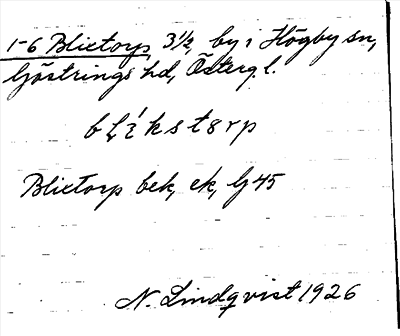 1-6 Blixtorp, 3 1/2, by i Högby sn,
Göstrings hd, Östergl.
Blixtorp bek, ek, G45
N. Lindqvist 1926